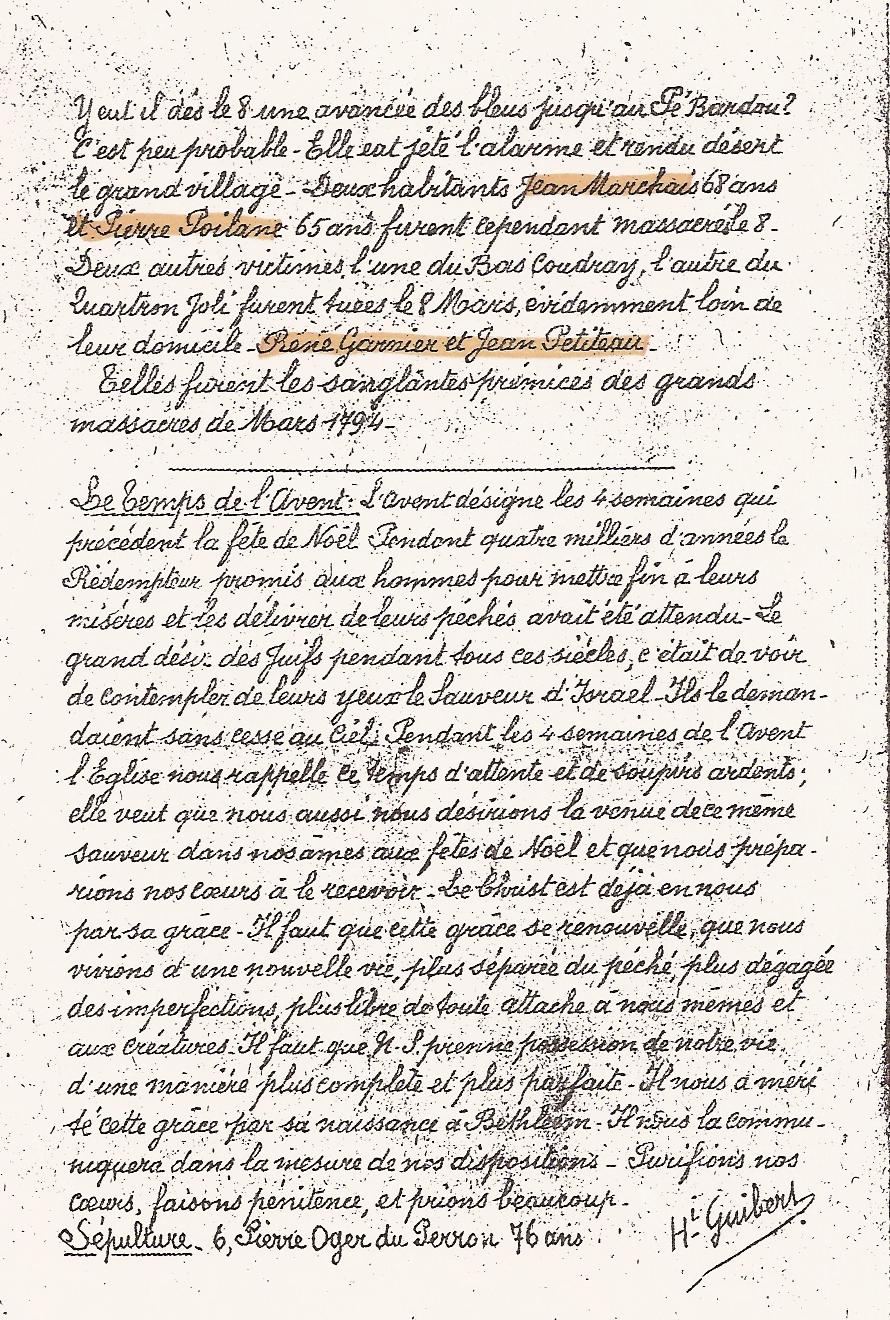 Y eut il dès le 8 une avancée des bleus jusqu'au Pé Bardou?
C'est peu probable - Elle eat jété l'alarme et rendu désert
le grand village - Deux habitants Jean Marchais 68 ans
et Pierre Poilane 65 ans furent cependant massacrés le 8 -
Deux autres victimes, l'une du Bas Coudray, l'autre du
Quartron Joli furent tuées le 8 Mars, évidemment loin de
leur domicile - René Garnier et Jean Petiteau -
Telles furent les sanglantes prémices des grands
massacres de Mars 1794 -
Le Temps de l'Avent : L'Avent désigne les 4 semaines qui
précédent la fête de Noël Pendant quatre milliers d'années le
Rédempteur promis aux hommes pour mettre fin à leurs
misères et les délivrer de leurs péchés avait été attendu - Le
grand désir des Juifs pendant tous ces siècles, c'était de voir
de contempler de leurs yeux le Sauveur d'Israel - Ils le deman-
daient sans cesse au Ciel. Pendant les 4 semaines de l'Avent
l'Eglise nous rappelle ce temps d'attente et de soupirs ardents;
elle veut que nous aussi nous désirions la venue de ce même
Sauveur dans nos âmes aux fêtes de Noël et que nous prépa-
rions nos cœurs à le recevoir - Le Christ est déjà en nous
par sa grâce - Il faut que cette grâce se renouvelle, que nous
vivions d'une nouvelle vie, plus séparée du péché, plus dégagée
des imperfections, plus libre de toute attache à nous mêmes et
aux créatures - Il faut que N. S. prenne possession de notre vie
d'une manière plus complète et plus parfaite - Il nous a méri
té cette grâce par sa naissance à Bethléem - Il nous la commu-
niquera dans la mesure de nos dispositions - Purifions nos
cœurs, faisons pénitence, et prions beaucoup -
Sépulture - 6, Pierre Oger du Perron 76 ans
Hi Guibert